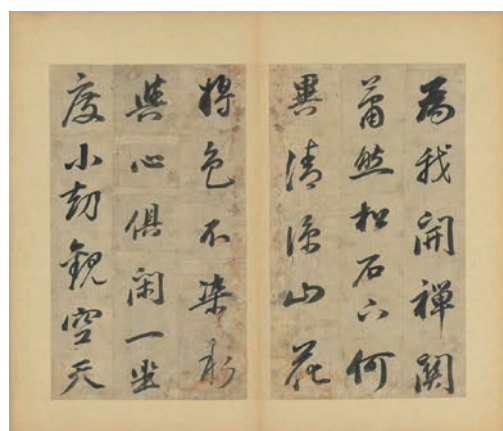 為我開禪關
蕭然松石下何
異清涼山花
將色不染水
與心俱閑一坐
度小劫觀空天